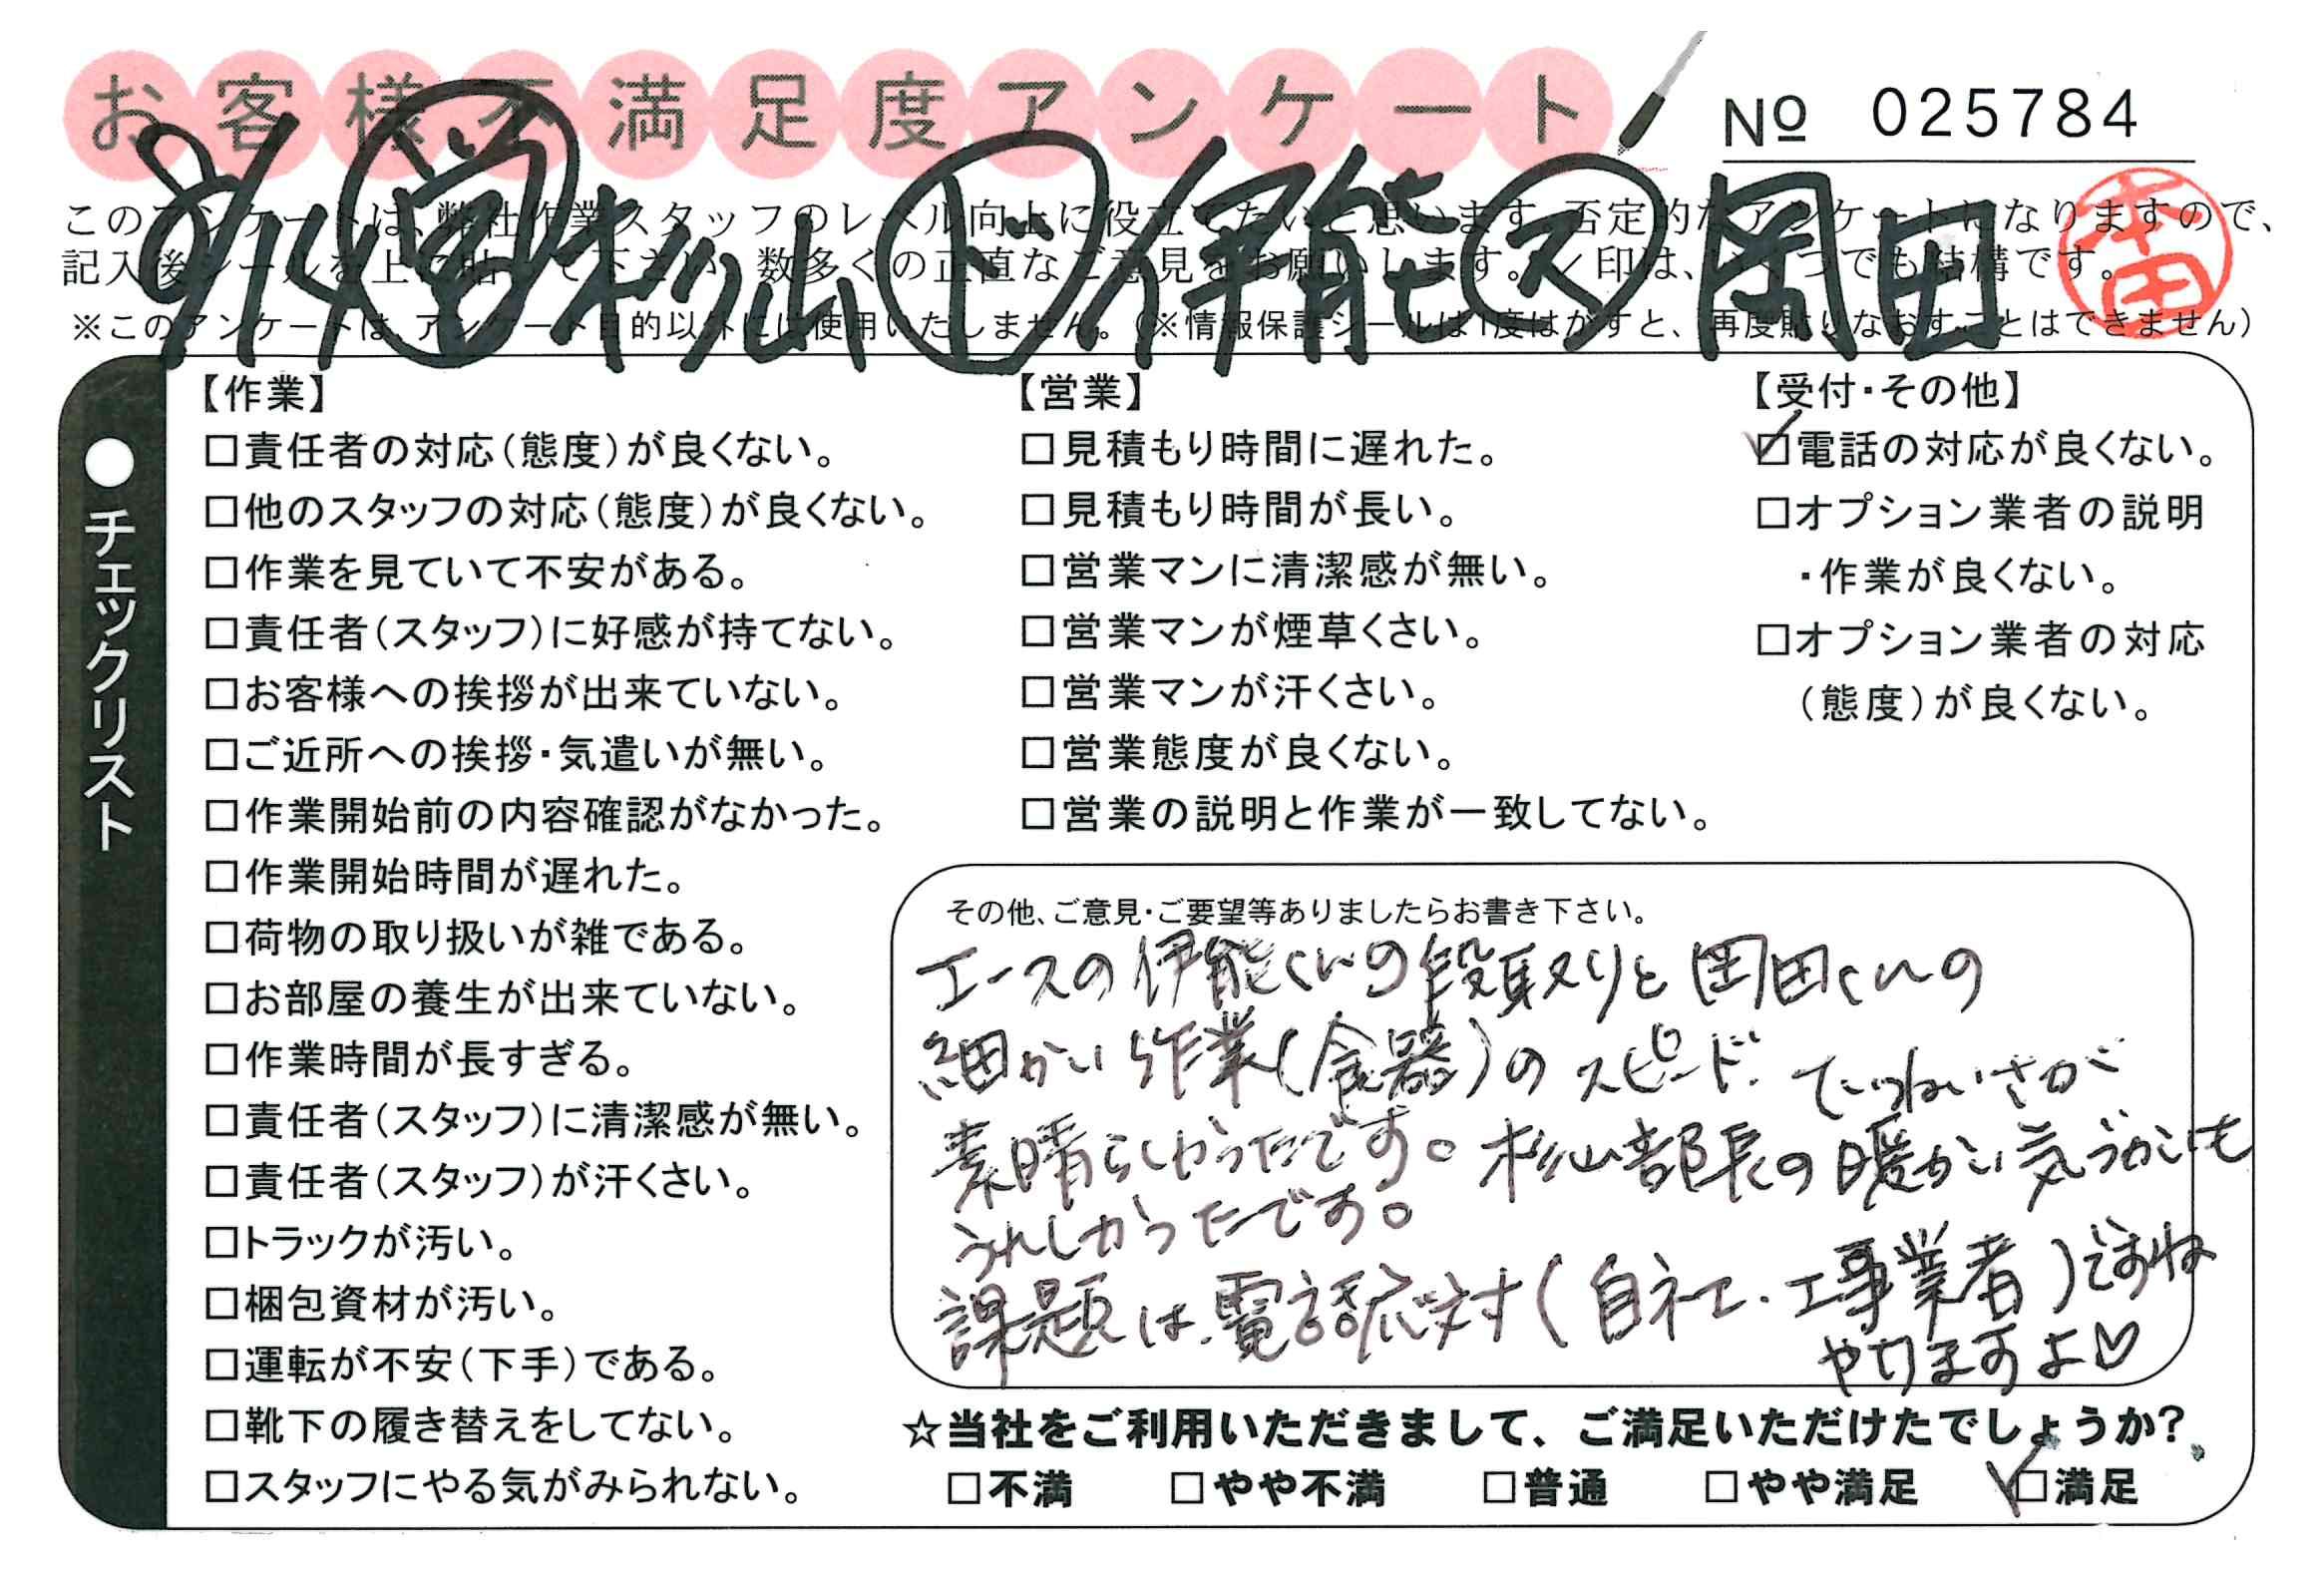 お客様不満足度アンケート
№ 025784
9/14 営 杉山 ド 伊能 ス 岡田
本田
このアンケートは、弊社作業スタッフのレベル向上に役立てたいと思います。否定的なアンケートになりますので、
記入後シールを上に貼って下さい。数多くの正直なご意見をお願いします。✓印は、いくつでも結構です。
※このアンケートは、アンケート目的以外には使用いたしません。(※情報保護シールは1度はがすと、再度貼りなおすことはできません)
●チェックリスト
【作業】
□責任者の対応(態度)が良くない。
□他のスタッフの対応(態度)が良くない。
□作業を見ていて不安がある。
□責任者(スタッフ)に好感が持てない。
□お客様への挨拶が出来ていない。
□ご近所への挨拶・気遣いが無い。
□作業開始前の内容確認がなかった。
□作業開始時間が遅れた。
□荷物の取り扱いが雑である。
□お部屋の養生が出来ていない。
□作業時間が長すぎる。
□責任者(スタッフ)に清潔感が無い。
□責任者(スタッフ)が汗くさい。
□トラックが汚い。
□梱包資材が汚い。
□運転が不安(下手)である。
□靴下の履き替えをしてない。
□スタッフにやる気がみられない。
【営業】
□見積もり時間に遅れた。
□見積もり時間が長い。
□営業マンに清潔感が無い。
□営業マンが煙草くさい。
□営業マンが汗くさい。
□営業態度が良くない。
□営業の説明と作業が一致してない。
【受付・その他】
☑電話の対応が良くない。
□オプション業者の説明
・作業が良くない。
□オプション業者の対応
(態度)が良くない。
その他、ご意見・ご要望等ありましたらお書き下さい。
エースの伊能くんの段取りと岡田くんの
細かい作業(食器)のスピード、ていねいさが
素晴らしかったです。杉山部長の暖かい気づかいも
うれしかったです。
課題は、電話応対(自社、工事業者)ですね
やりますよ♡
☆当社をご利用いただきまして、ご満足いただけたでしょうか?
□不満 □やや不満 □普通 □やや満足 ☑満足